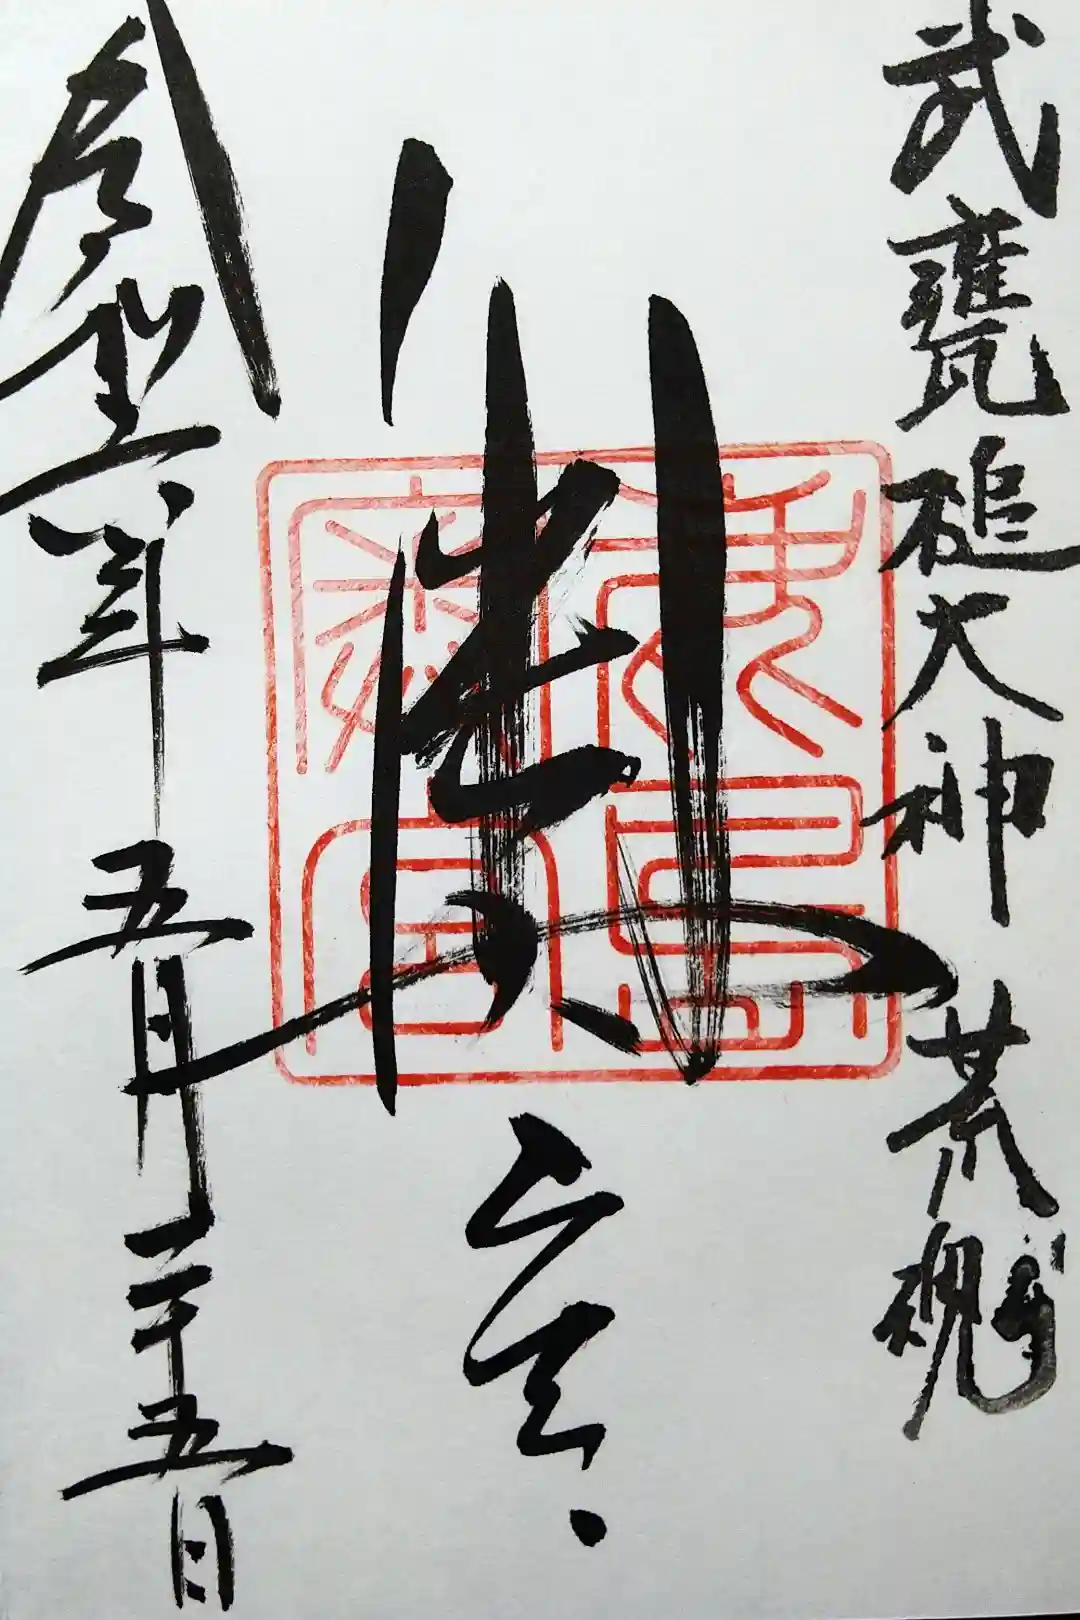 武甕槌大神荒魂
奥宮
鹿島
奥宮
令和 年五月二十五日